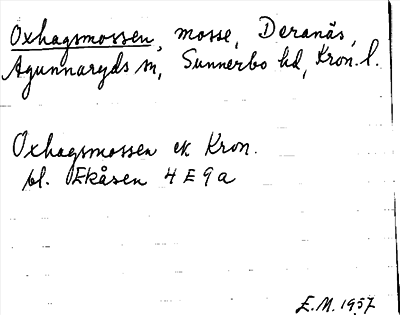 Oxhagsmossen, mosse, Deranäs,
Agunnaryds sn, Sunnerbo hd, Kron. l.
Oxhagsmossen ek Kron.
bl. Ekåsen 4 E 9 a
E.M. 1957